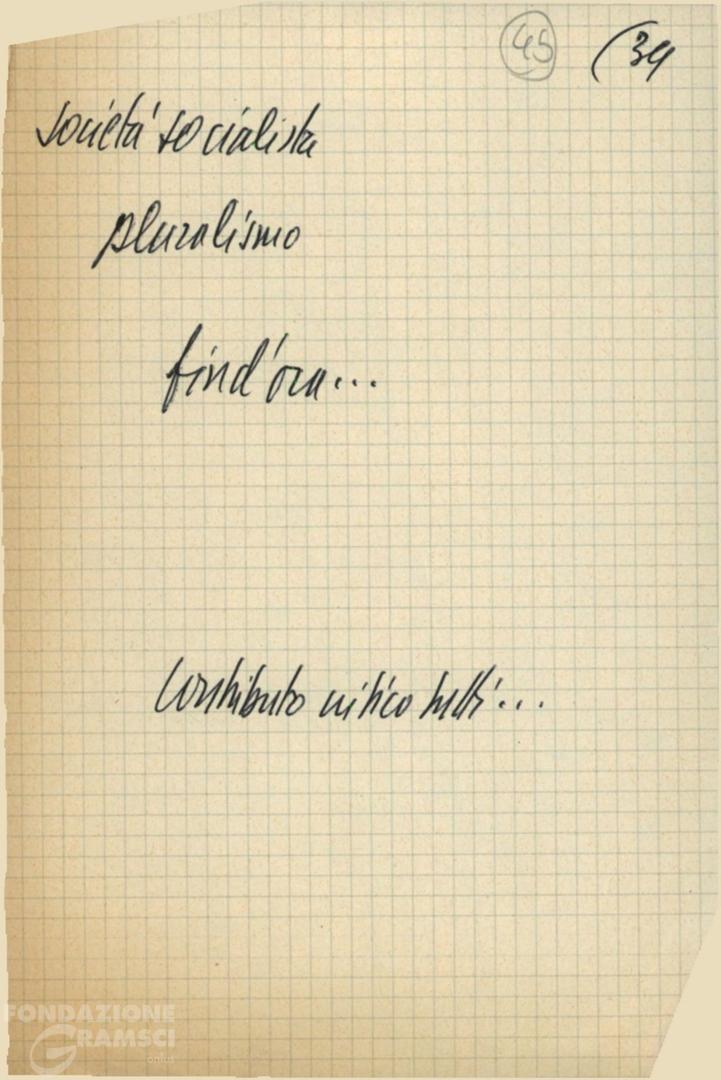 45 (34
società socialista
pluralismo
fin d'ora...
Contributo critico tutti...
FONDAZIONE
GRAMSCI
onlus